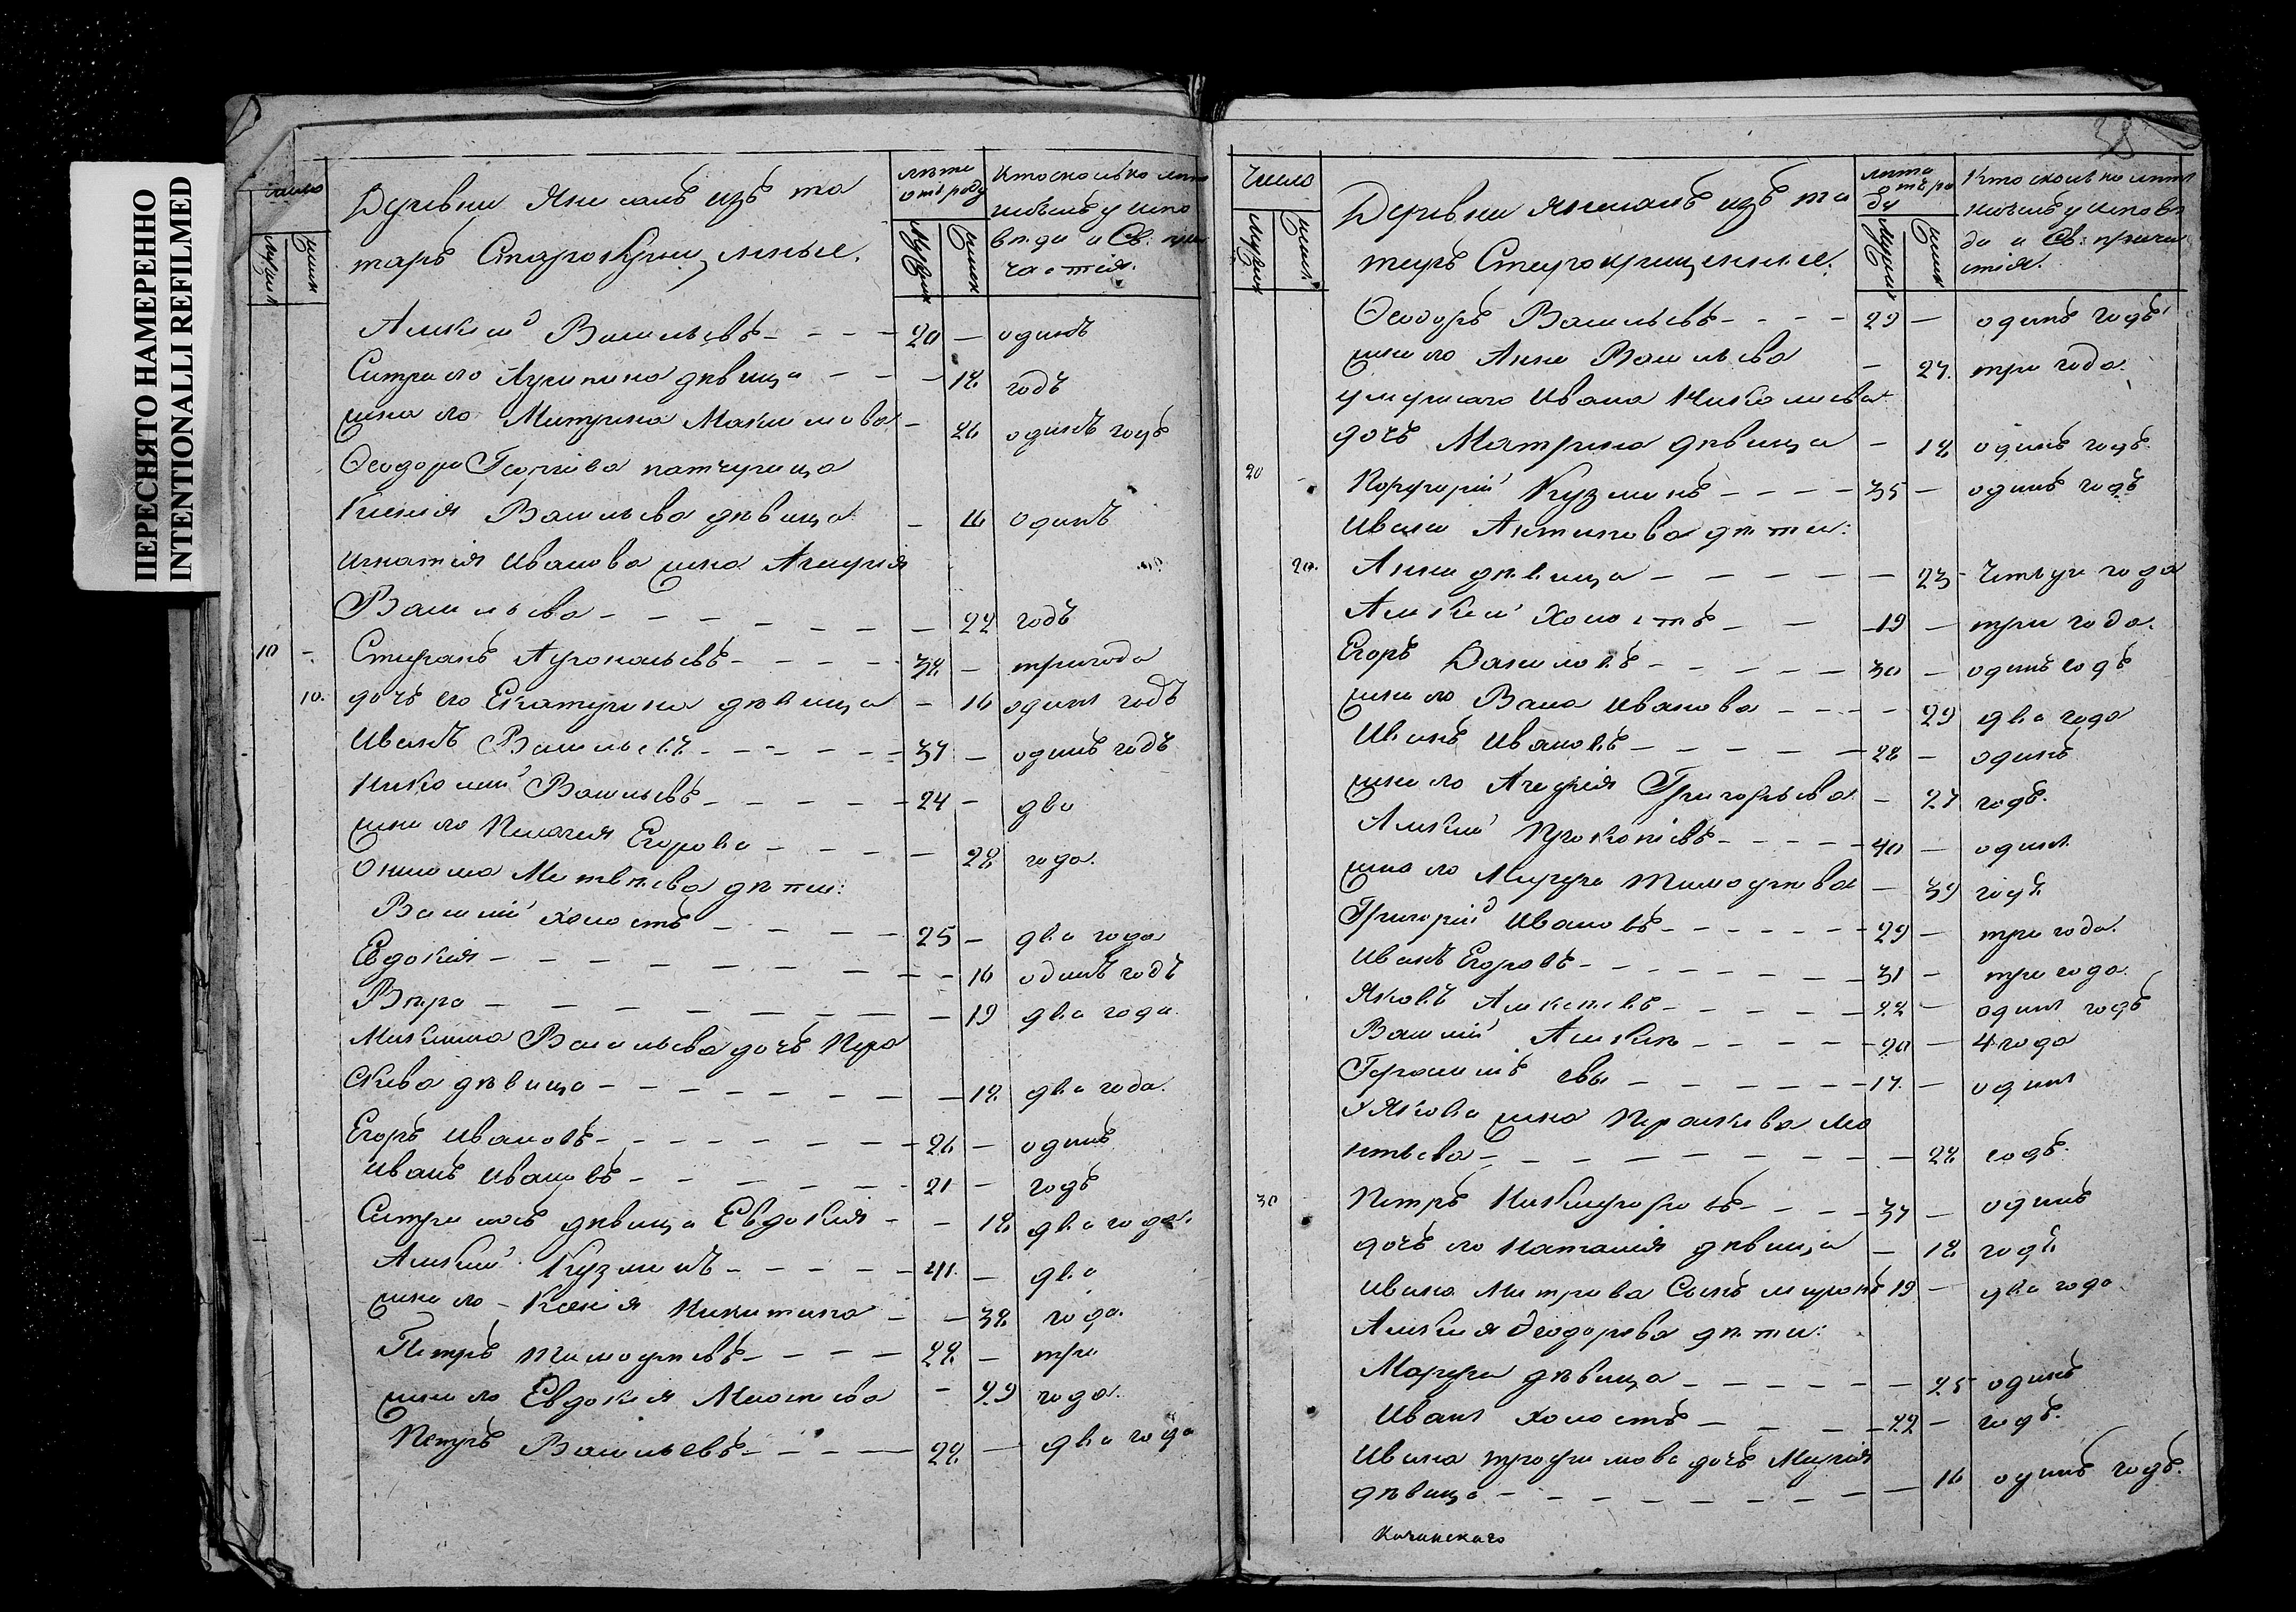 ПЕРЕСНЯТО НАМЕРЕННО
INTENTIONALLI REFILMED
число
мужеск
женск
Деревни Янсалъ изъ та
таръ Старокрещенные.
лѣта отъ роду
мужеск
женск
Кто сколько лѣтъ не былъ у исповѣди и Св. причастія.
Алексѣй Васильевъ - - - 20 — одинъ
Сестра его Агрипина дѣвица - - - 18 годъ
жена его Матрена Максимова - 26 одинъ годъ
Ѳеодора Георгіева падчерица
Ксенія Васильева дѣвица - 16 одинъ
Игнатія Иванова жена Агафія
Васильева - - - - - - - 22 годъ
10 - Стефанъ Афонасьевъ - - - - 38 — три года
10. дочь его Екатерина дѣвица - 16 одинъ годъ
Иванъ Васильевъ - - - - - 37 — одинъ годъ
Николай Васильевъ - - - - - 24 — два
жена его Пелагея Егорова - - - - 28 года.
Онисима Матвѣева дѣти:
Василій холостъ - - - - 25 — два года
Евдокія - - - - - - - - - 16 одинъ годъ
Вѣра - - - - - - - - 19 два года
Максима Васильева дочь Пара
скева дѣвица - - - - - - - 18 два года.
Егоръ Ивановъ - - - - - - - 26 — одинъ
Иванъ Ивановъ - - - - - - 21 — годъ
Сестра ихъ дѣвица Евдокія - - 18 два года.
Алексѣй Кузминъ - - - - - 41. — два
жена его - Ксенія Никитина - - 38 года.
Петръ Тимофѣевъ - - - - 28 — три
жена его Евдокія - 29 года.
Петръ Васильевъ - - - - 28 — два года
38
Число
мужеск
женск.
Деревни Янсалъ изъ та
таръ Старокрещенные.
лѣта отъ роду
мужеск
женск
Кто сколько лѣтъ не былъ у исповѣди и Св: причастія.
Ѳеодоръ Васильевъ - - - - 29 — одинъ годъ
жена его Анна Васильева - 27. три года.
умершаго Ивана Николаева
дочь Матрена дѣвица - 18 одинъ годъ.
20 - Порфирій Кузминъ - - - - 35 — одинъ годъ
Ивана Антипова дѣти:
20. Анна дѣвица - - - - - - 23 - четыре года
Алексѣй холостъ - - - 19 — три года.
Егоръ Даниловъ - - - - - 30 — одинъ годъ
жена его Васа Иванова - - - - 29 два года
Иванъ Ивановъ - - - - - 28 — одинъ
жена его Агафія Григорьева - 27 годъ.
Алексѣй Прокопіевъ - - - - 40 — одинъ
жена его Марфа Тимофѣева - 39 годъ
Григорій Ивановъ - - - - - - 29 — три года.
Иванъ Егоровъ - - - - - - 31 — три года.
Яковъ Алексѣевъ - - - - - 22 — одинъ годъ
Василій Алексѣ - - - - - 20 — 4 года
Герасимъ евы - - - - - - 17. — одинъ
У Якова жена Параскева
- - - - - - - - - 28 годъ.
30 Петръ Никифоровъ - - - - 37 — одинъ
дочь его Наталія дѣвица - 18 годъ
Ивана Сынъ 19 — два года.
Алексѣя Ѳеодорова дѣти:
Марфа дѣвица - - - - - - 25 одинъ
Иванъ холостъ - - - - 22 — годъ.
Ивана Трофимова дочь Марія
дѣвица - - - - - - - - - 16 одинъ годъ.